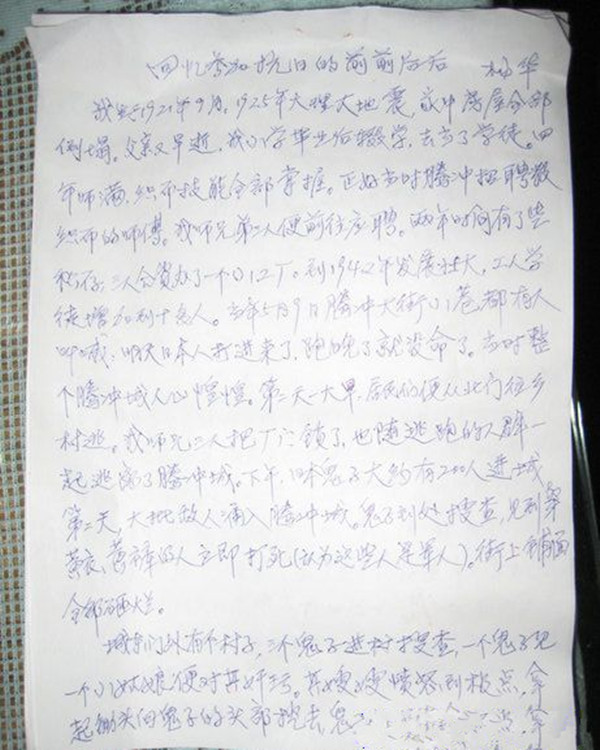 回忆参加抗日的前前后后 杨华
我生于1921年9月。1925年大理大地震,家中房屋全部
倒塌。父亲又早逝,我小学毕业后辍学,去当了学徒。四
年师满,织布技能全部掌握。正好当时腾冲招聘教
织布的师傅。我师兄弟二人便前往应聘。两年时间有了些
积存,三人合资办了一个小工厂。到1942年发展壮大,工人学
徒增加到十多人。当年5月9日腾冲大街小巷都有人
叫喊:明天日本人打进来了,跑晚了就没命了。当时整
个腾冲城人心惶惶。第二天一大早,居民们便从北门往乡
村逃。我师兄三人把厂门锁了,也随逃跑的人群一
起逃离了腾冲城。下午,日本鬼子大约有200人进城
第二天,大批敌人涌入腾冲城。鬼子到处搜查,见到穿
黄衣、黄裤的人立即打死(认为这些人是军人)。街上铺面
全部砸烂。
城东门外有个村子,三个鬼子进村搜查,一个鬼子见
一个小姑娘便对其奸污。其嫂嫂愤怒到极点,拿
起锄头向鬼子的头部挖去鬼